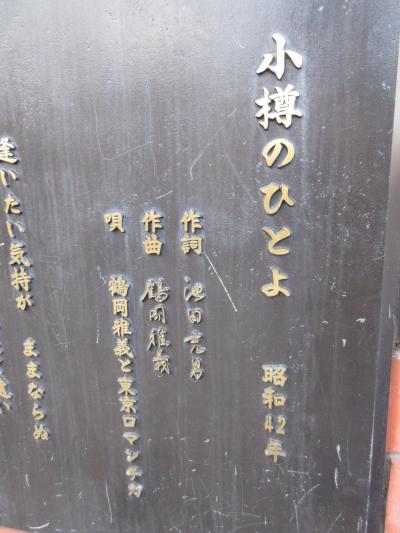 小樽のひとよ 昭和42年
作詞 池田充男
作曲 鶴岡雅義
唄 鶴岡雅義と東京ロマンチカ
逢いたい気持が ままならぬ